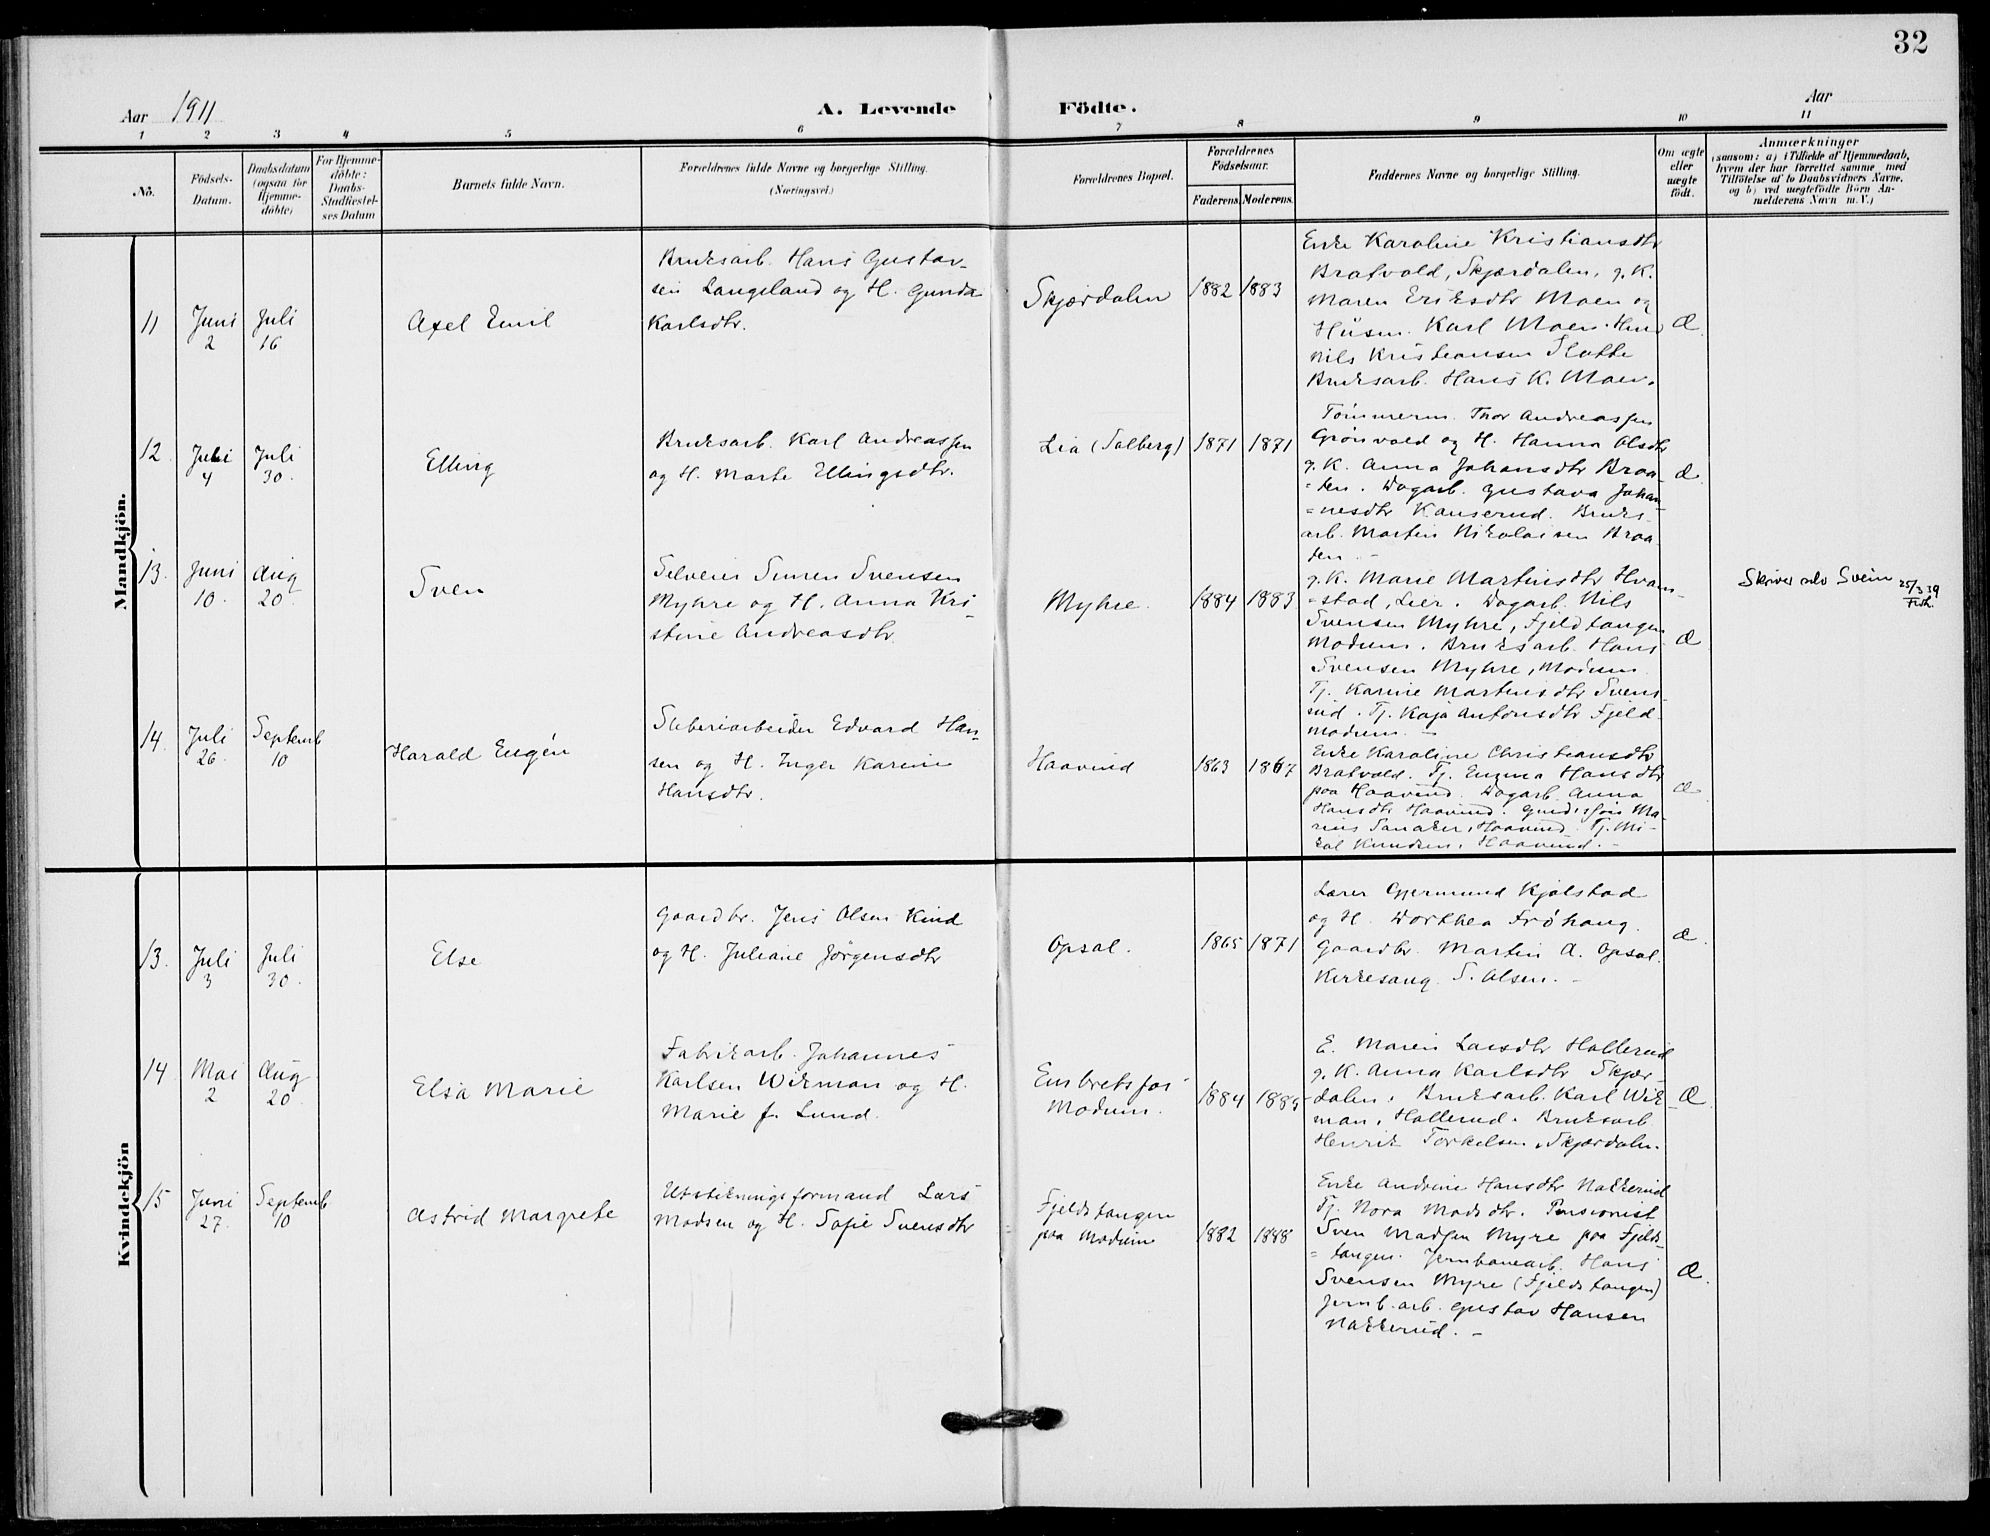 32
Aar 1911
A. Levende Födte.
Aar
1 2 3 4 5 6 7 8 9 10 11
No.
Födsels-Datum.
Daabsdatum (ogsaa for Hjemme-döbte)
For Hjemme-döbte: Daabs-Stadfæstel-ses Datum
Barnets fulde Navn.
Forældrenes fulde Navne og borgerlige Stilling.
(Næringsvei.)
Forældrenes Bopæl.
Forældrenes Födselsaar.
Faderens. Moderens.
Faddernes Navne og borgerlige Stilling.
Om ægte eller uægte födt.
Anmærkninger
(saasom: a) i Tilfælde af Hjemmedaab,
hvem der har forrettet samme, med
Tilföielse af to Daabsvidners Navne,
og b) ved uegtefödte Börn An-
melderens Navn m. V.)
Mandkjön.
11
Juni 2
Juli 16
Axel Emil
Bruksarb. Hans Gustav-
sen Langeland og H. Gunda
Karlsdtr.
Skjærdalen
1882 1883
Enke Karoline Kristiansdtr
Bratvold, Skjærdalen, g. K.
Maren Eriksdtr Moen og
Husm. Karl Moen.
Nils Kristiansen Slotte
Bruksarb. Hans K. Moen.
Æ
12.
Juli 4
Juli 30.
Elling
Bruksarb. Karl Andreassen
og H. Marte Ellingsdtr.
Lia (Solberg)
1871 1871
Tömmerm. Thor Andreassen
Grönvold og H. Hanna Olsdtr
g. K. Anna Johansdtr Braa-
=ten. Dagarb. Gustava Johan-
=nesdtr Kanserud. Bruks-
arb. Martin Nikolaisen Braa-
ten. -
Æ
13.
Juni 10.
Aug 20.
Sven
Selveier Simen Svensen
Myhre og H. Anna Kri-
stine Andreasdtr.
Myhre.
1884 1883
g. K. Marie Martinsdtr Hvam-
=stad, Lier. Dagarb. Nils
Svensen Myhre, Fjeldtangen
Modum. Bruksarb. Hans
Svensen Myhre, Modum.
Tj. Karine Martinsdtr Svens-
rud. Tj. Kaja Antonsdtr Fjeld-
Modum. -
Æ
Skriver selv Svein 25/3 39
14.
Juli 26.
Septemb 10
Harald Eugén
Sliberiarbeider Edvard Han-
sen og H. Inger Karine
Hansdtr.
Haavind
1863 1867
Enke Karoline Christiansdtr
Bratvold. Tj. Emma Hansdtr
paa Haavind. Dagarb. Anna
Hansdtr Haavind. Ma-
rius Sanaker, Haavind. Tj. Mi-
kal Knudsen, Haavind. -
Æ
Kvindekjön
13.
Juli 3
Juli 30.
Else
Gaardbr. Jens Olsen Kind
og H. Juliane Jörgensdtr
Opsal.
1865 1871
Lærer Gjermund Kjölstad
og H. Dorthea Fröhaug.
Gaardbr. Martin A. Opsal.
Kirkesang. S. Olsen. -
Æ.
14
Mai 2
Aug 20.
Elsa Marie
Fabrikarb. Johannes
Karlsen Wikman og H.
Marie f. Lund.
Embretsfos
Modum.
1884 1885
E. Maren Larsdtr Hallerud
g. K. Anna Karlsdtr Skjær-
dalen. Bruksarb. Karl Wik-
man, Hallerud. Bruksarb.
Henrik Torkelsen, Skjærdalen.
Æ.
15
Juni 27.
Septemb 10
Astrid Margrete
Utstikningsformand Lars
Madsen og H. Sofie Svensdtr
Fjeldstangen
paa Modum
1882 1888
Enke Andrine Hansdtr Nakkerud
Tj. Nora Madsdtr. Pensionist
Sven Madsen Myre paa Fjelds-
=tangen. Jernbanearb. Hans
Svensen Myre (Fjeldstangen)
Jernb.arb. Gustav Hansen
Nakkerud. -
Æ.